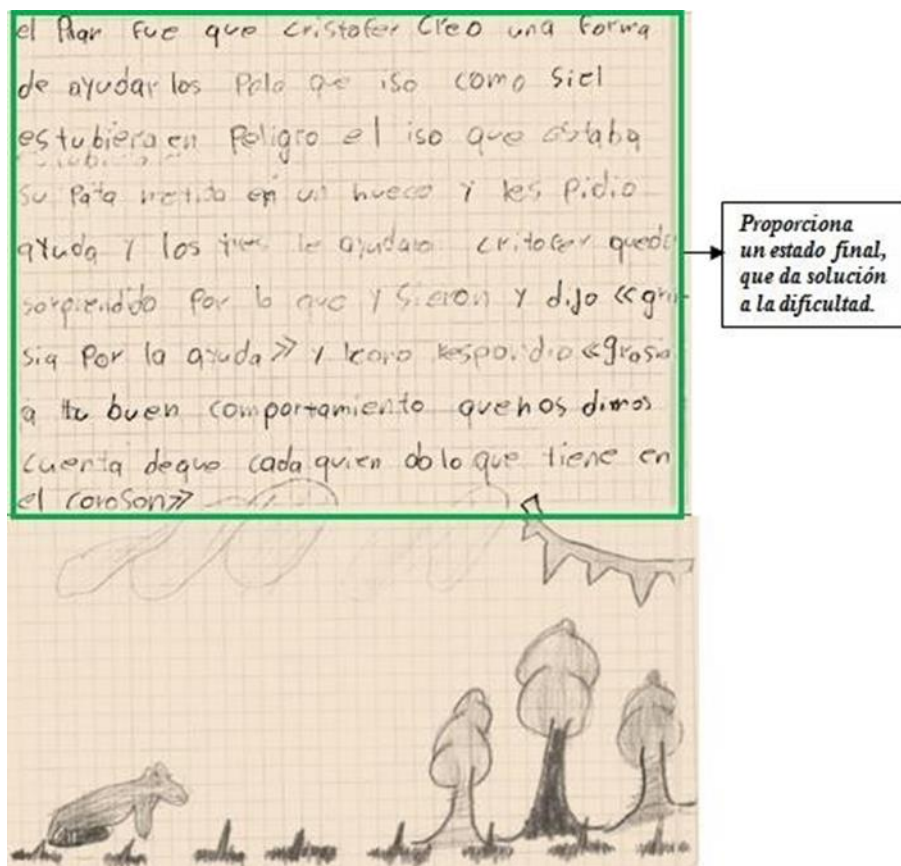 el Plan fue que cristofer Creo una forma
de ayudar los Polo que iso como siel
estubiera en Peligro el iso que estaba
su Pata metida en un hueco y les Pidio
ayuda y los tres le ayudaro critofer quedo
sorprendido Por lo que y sieron y dijo «gra-
sia Por la ayuda» y Icaro respondio «grasia
a tu buen comportamiento que nos dimos
cuenta deque cada quien da lo que tiene en
el coroson»
Proporciona
un estado final,
que da solución
a la dificultad.